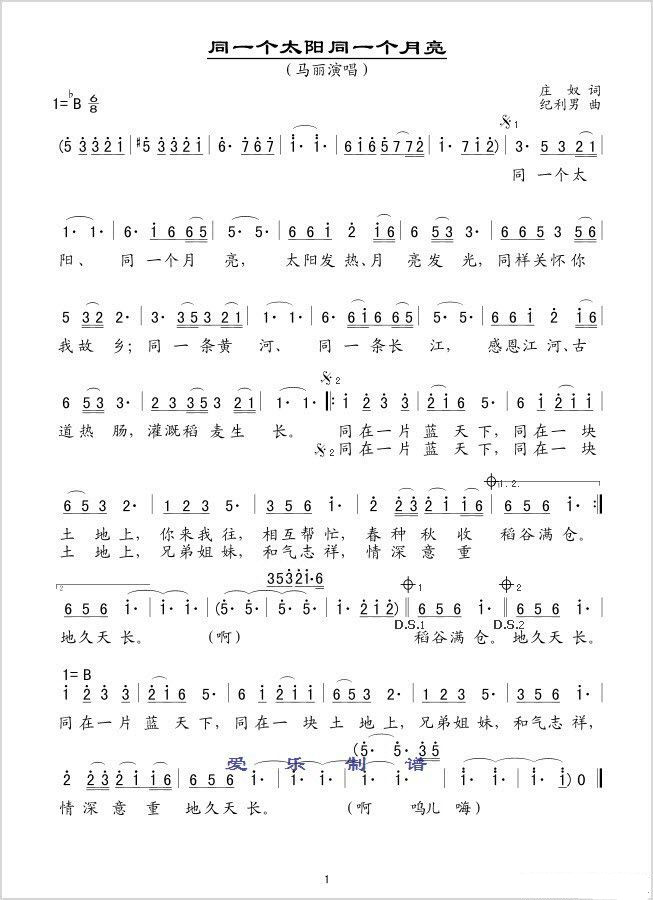 同一个太阳同一个月亮
（马丽演唱）
1=♭B 6/8
庄 奴 词
纪利男 曲
𝄋1
(5 3 3 2 1 | #5 3 3 2 1 | 6· 7 6 7 | 1· 1· | 6 1 6 5 7 7 2 | 1· 7 1 2) | 3· 5 3 2 1 |
同 一个太
1· 1· | 6· 1 6 6 5 | 5· 5· | 6 6 1 2 1 6 | 6 5 3 3· | 6 6 5 3 5 6 |
阳、 同 一个月 亮， 太阳发热、月 亮发 光，同样关怀你
5 3 2 2· | 3· 3 5 3 2 1 | 1· 1· | 6· 6 1 6 6 5 | 5· 5· | 6 6 1 2 1 6 |
我故 乡；同 一 条黄 河、 同 一条长 江， 感恩江 河、古
𝄋2
6 5 3 3· | 2 2 3 5 3 2 | 1· 1· |: 1 2 3 3 | 2 1 6 5· | 6 1 2 1 1 |
道热 肠，灌溉稻 麦生 长。 同在一片 蓝 天 下，同在一 块
𝄋2同在一片 蓝 天 下，同在一 块
1. 2.
6 5 3 2· | 1 2 3 5· | 6 5 6 1· | 2 2 3 2 1 1 6 | 6 5 6 1· :|
土 地上，你来我 往，相互帮 忙，春 种 秋 收 稻谷满 仓。
土 地上，兄弟姐 妹，和气志 祥，情 深 意 重
3 5 3 2 1·6
2
1
2
6 5 6 1· | 1· 1· | (5· 5· | 1· 2 1 2) | 6 5 6 1· | 6 5 6 1· |
D.S.1 D.S.2
地久天 长。 （啊） 稻谷满 仓。地久天 长。
1= B
1 2 3 3 | 2 1 6 5· | 6 1 2 1 1 | 6 5 3 2· | 1 2 3 5· | 6 5 6 1· |
同在一片 蓝 天 下，同在一 块 土 地上，兄弟姐 妹，和气志 祥，
(5· 5· 3 5
爱 乐 制 谱
2 2 3 2 1 1 6 | 6 5 6 1· | 1· 1· | 1· 1· | 1· 1· | 1) 0 ‖
情深 意 重 地久天 长。 （啊 呜儿 嗨）
1